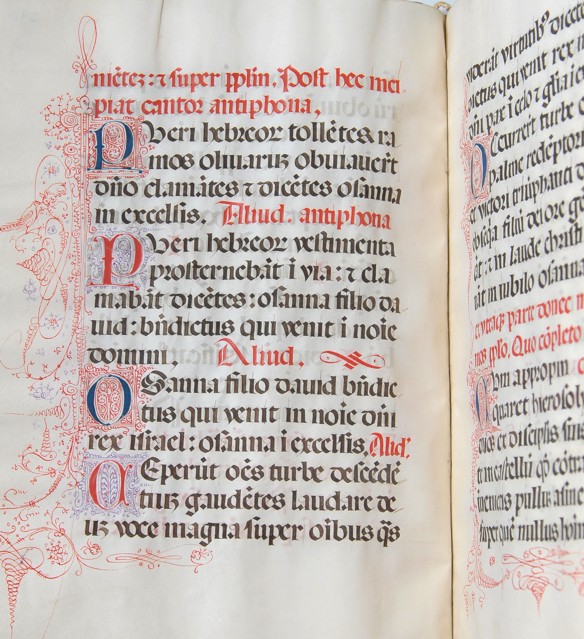 nietez: ⁊ super pplin. Post hec inci
piat cantor antiphona,
Pueri hebreor tolletes ra
mos oliuaruz obuiauert
dno clamates ⁊ dicetes osanna
in excelsis. Aliud. antiphona
Pueri hebreor vestimenta
prosternebat i via: ⁊ cla
mabat dicetes: osanna filio da
uid: bndictus qui venit i noie
domini, Aliud,
Osanna filio dauid bndic
tus qui venit in noie dni
rex israel: osanna i excelsis, Aliud.
Ceperut oes turbe descede
tiuz gaudetes laudare de
uz voce magna super oibus qs
uiderat virtutib dicete
dictus qui venit rex in
dni pax i celo ⁊ glia i e
Occurrert turbe
palme redeptori
et victori triuphanti d
obseqia filiu dei ore ge
at: ⁊ in laude christi
nat in iubilo osanna
parte donec
mos ipso. Quo copleto
Cum appropin
quaret hierosol
ex discipulis suis
te in castellu qd cotra
inuenietis pullus asine
super que nullus hom